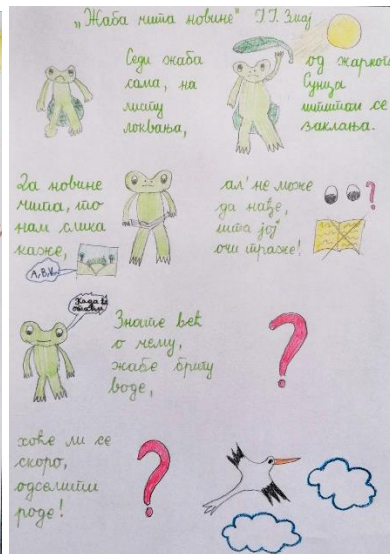 „Жаба чита новине" Ј.Ј. Змај
Седи жаба
сама, на
листу
локвања,
од жаркога
Сунца
штитом се
заклања.
Да новине
чита, то
нам слика
каже,
А, Б, В,
ал' не може
да нађе,
шта јој
очи траже!
Када ће
Знате већ
о чему,
жабе бригу
воде,
хоће ли се
скоро,
одселити
роде!